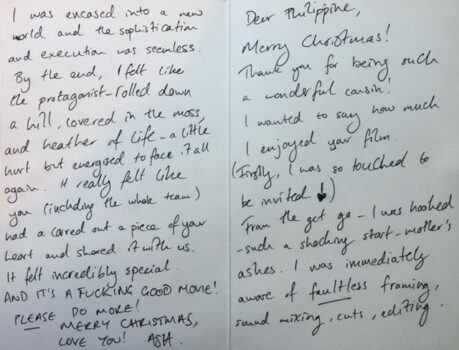 Dear Philippine,
Merry Christmas!
Thank you for being such
a wonderful cousin!
I wanted to say how much
I enjoyed your film.
(Firstly, I was so touched to
be invited ↓)
From the get go - I was hooked
- such a shocking start - mother's
ashes. I was immediately
aware of faultless framing,
sound mixing, cuts, editing.
I was encased into a new
world and the sophistication
and execution was seemless.
By the end, I felt like
the protagonist - rolled down
a hill, covered in the moss
and heather of life - a little
hurt but energised to face it all
again. It really felt like
you (including the whole team)
had a carved out a piece of your
heart and shared it with us.
It felt incredibly special.
AND IT'S A FUCKING GOOD MOVIE!
PLEASE DO MORE!
MERRY CHRISTMAS,
LOVE YOU! ASH.